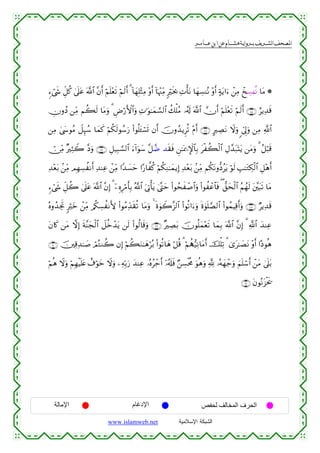 المصحف الشريف برواية هشام عن ابن عامر
* مَا نُنسِخْ مِنْ ءَايَةٍ أَوْ نُنسِهَا نَأْتِ بِخَيْرٍ مِّنْهَآ أَوْ مِثْلِهَآ أَلَمْ تَعْلَمْ أَنَّ ٱللَّهَ عَلَىٰ كُلِّ شَىْءٍ
قَدِيرٌ أَلَمْ تَعْلَمْ أَنَّ ٱللَّهَ لَهُۥ مُلْكُ ٱلسَّمَٰوَٰتِ وَٱلْأَرْضِ وَمَا لَكُم مِّن دُونِ
ٱللَّهِ مِن وَلِىٍّ وَلَا نَصِيرٍ أَمْ تُرِيدُونَ أَن تَسْـَٔلُوا۟ رَسُولَكُمْ كَمَا سُئِلَ مُوسَىٰ مِن
قَبْلُ وَمَن يَتَبَدَّلِ ٱلْكُفْرَ بِٱلْإِيمَٰنِ فَقَد ضَّلَّ سَوَآءَ ٱلسَّبِيلِ وَدَّ كَثِيرٌ مِّنْ
أَهْلِ ٱلْكِتَٰبِ لَوْ يَرُدُّونَكُم مِّنۢ بَعْدِ إِيمَٰنِكُمْ كُفَّارًا حَسَدًا مِّنْ عِندِ أَنفُسِهِم مِّنۢ بَعْدِ
مَا تَبَيَّنَ لَهُمُ ٱلْحَقُّ فَٱعْفُوا۟ وَٱصْفَحُوا۟ حَتَّىٰ يَأْتِىَ ٱللَّهُ بِأَمْرِهِۦٓ إِنَّ ٱللَّهَ عَلَىٰ كُلِّ شَىْءٍ
قَدِيرٌ وَأَقِيمُوا۟ ٱلصَّلَوٰةَ وَءَاتُوا۟ ٱلزَّكَوٰةَ وَمَا تُقَدِّمُوا۟ لِأَنفُسِكُم مِّنْ خَيْرٍ تَجِدُوهُ
عِندَ ٱللَّهِ إِنَّ ٱللَّهَ بِمَا تَعْمَلُونَ بَصِيرٌ وَقَالُوا۟ لَن يَدْخُلَ ٱلْجَنَّةَ إِلَّا مَن كَانَ
هُودًا أَوْ نَصَٰرَىٰ تِلْكَ أَمَانِيُّهُمْ قُلْ هَاتُوا۟ بُرْهَٰنَكُمْ إِن كُنتُمْ صَٰدِقِينَ
بَلَىٰ مَنْ أَسْلَمَ وَجْهَهُۥ لِلَّهِ وَهُوَ مُحْسِنٌ فَلَهُۥٓ أَجْرُهُۥ عِندَ رَبِّهِۦ وَلَا خَوْفٌ عَلَيْهِمْ وَلَا هُمْ
يَحْزَنُونَ
الحرف المخالف لحفص الإدغام الإمالة
www.islamweb.net الشبكة الإسلامية